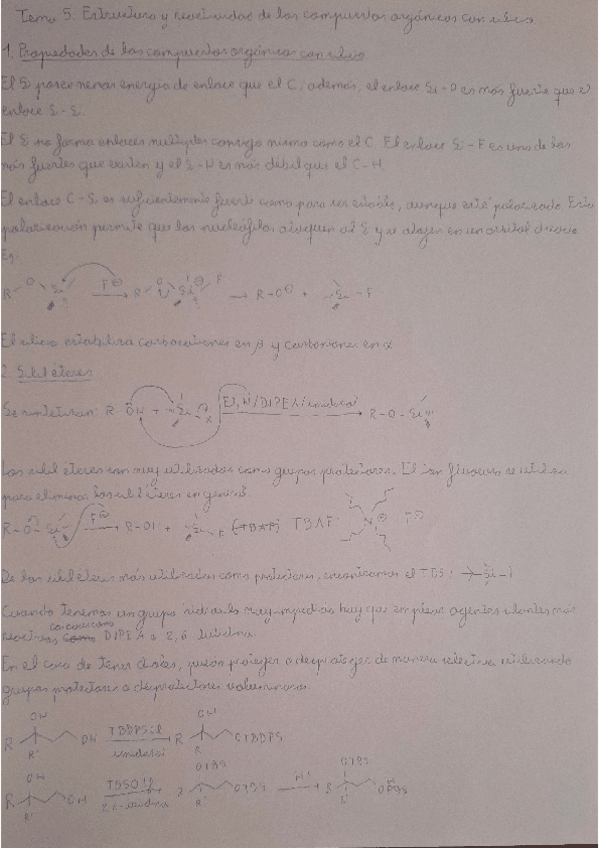 Tema 5. Estructura y reactividad de los compuestos orgánicos con silicio
1. Propiedades de los compuestos orgánicos con silicio
El Si posee menor energía de enlace que el C; además, el enlace Si-O es más fuerte que el
enlace Si-Si.
El Si no forma enlaces múltiples consigo mismo como el C. El enlace Si-F es uno de los
más fuertes que existen y el Si-H es más débil que el C-H.
El enlace C-Si es suficientemente fuerte como para ser estable, aunque está polarizado. Esta
polarización permite que los nucleófilos ataquen al Si y se alojen en un orbital d vacío
Eg:
R O Si F⊖ R O Si⊖ F → R-O⊖ + Si-F
El silicio estabiliza carbocationes en β y carbaniones en α
2. Silil éteres
Se sintetizan: R-OH + Si X Et3N/DIPEA/imidazol R-O-Si
Los silil éteres son muy utilizados como grupos protectores. El ion fluoruro se utiliza
para eliminar los silil éteres en general.
R-O-Si F⊖ R-OH + Si-F (TBAF) TBAF: N⊕ F⊖
De los silil éteres más utilizados como protectores, encontramos el TBS: Si
Cuando tenemos un grupo hay que emplear agentes más
reactivos como DIPEA o 2,6 lutidina.
En el caso de tener dioles, puedo proteger o desproteger de manera selectiva utilizando
grupos protectores o desprotectores voluminosos.
OH OH
R R' OH TBDPSCl imidazol R R' OTBDPS
OH OTBS OTBS
R R' OH 2,6-lutidina R' OTBS H+ R R'